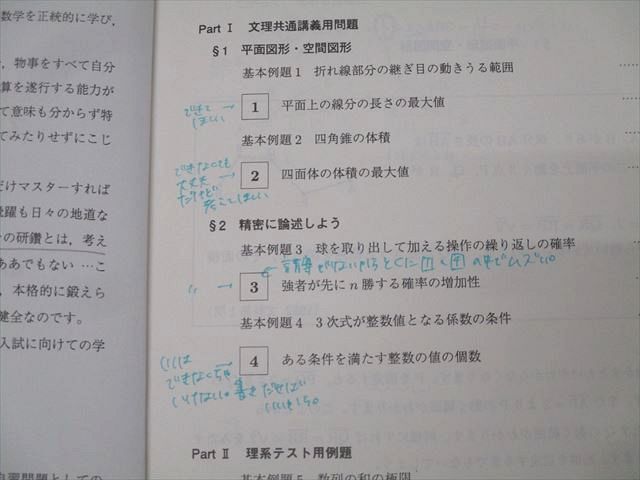 数学を正統的に学び,
物事をすべて自分
算を遂行する能力が
て意味も分からず特
てみたりせずにこじ
だけマスターすれば
飛躍も日々の地道な
の研鑽とは, 考え
ああでもない…こ
, 本格的に鍛えら
健全なのです.
入試に向けての学
自習問題としての
Part Ⅰ 文理共通講義用問題
§1 平面図形・空間図形
基本例題1 折れ線部分の継ぎ目の動きうる範囲
できて
ほしい
→ 1 平面上の線分の長さの最大値
基本例題2 四角錐の体積
できなくても
大丈夫
だけど
考えてほしい
→ 2 四面体の体積の最大値
§2 精密に論述しよう
基本例題3 球を取り出して加える操作の繰り返しの確率
〃 → 3 強者が先に n 勝する確率の増加性
基本例題4 3次式が整数値となる係数の条件
(1)は
できなくちゃ
いけない。書きだせば
いいから。
→ 4 ある条件を満たす整数の値の個数
Part Ⅱ 理系テスト用例題
基本例題5 数列の和の極限